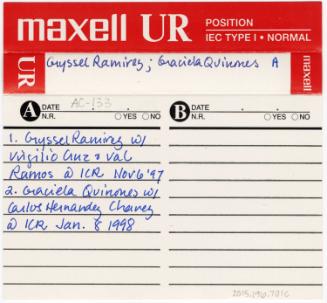 maxell UR POSITION
IEC TYPE I • NORMAL
UR
Gryssel Ramirez; Graciela Quinones A
maxell
A DATE AC-133
N.R. ○YES ○NO
B DATE . .
N.R. ○YES ○NO
1. Gryssel Ramirez w/
Virgilio Cruz & Val
Ramos @ ICR Nov 6 '97
2. Graciela Quinones w/
Carlos Hernandez Chavez
@ ICR Jan. 8 1998
2015.196.701c